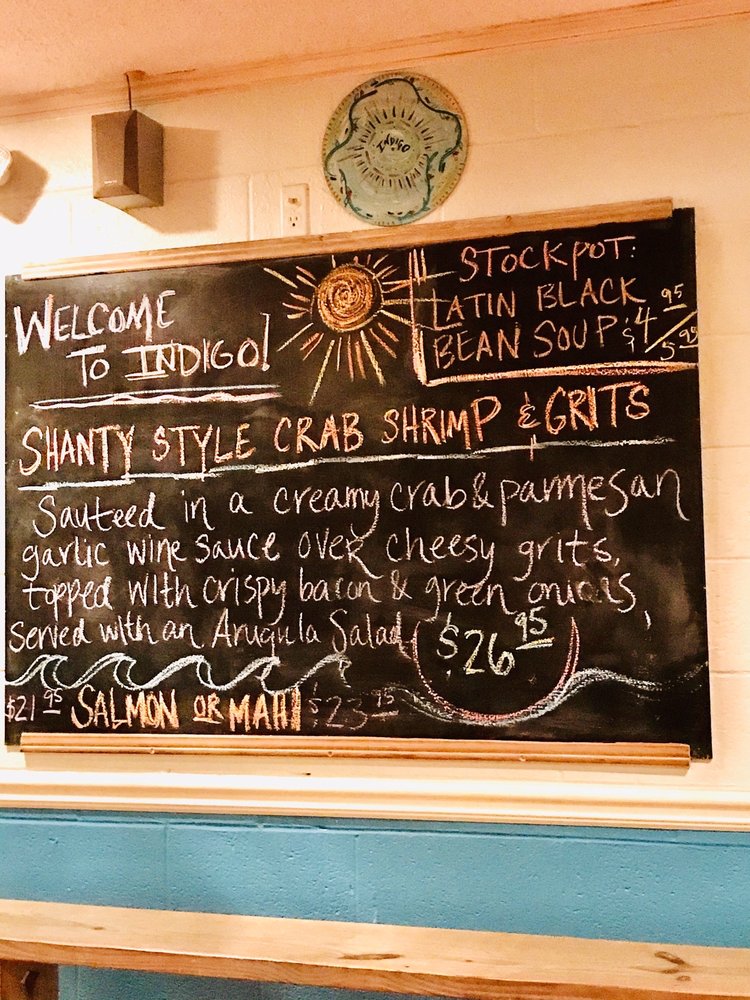 WELCOME
TO INDIGO!
STOCKPOT:
LATIN BLACK
BEAN SOUP $4.95/5.95
SHANTY STYLE CRAB SHRIMP & GRITS
Sauteed in a creamy crab & parmesan
garlic wine sauce over cheesy grits,
topped with crispy bacon & green onions,
Served with an Arugula Salad
$26.95
$21.95 SALMON OR MAHI $23.95